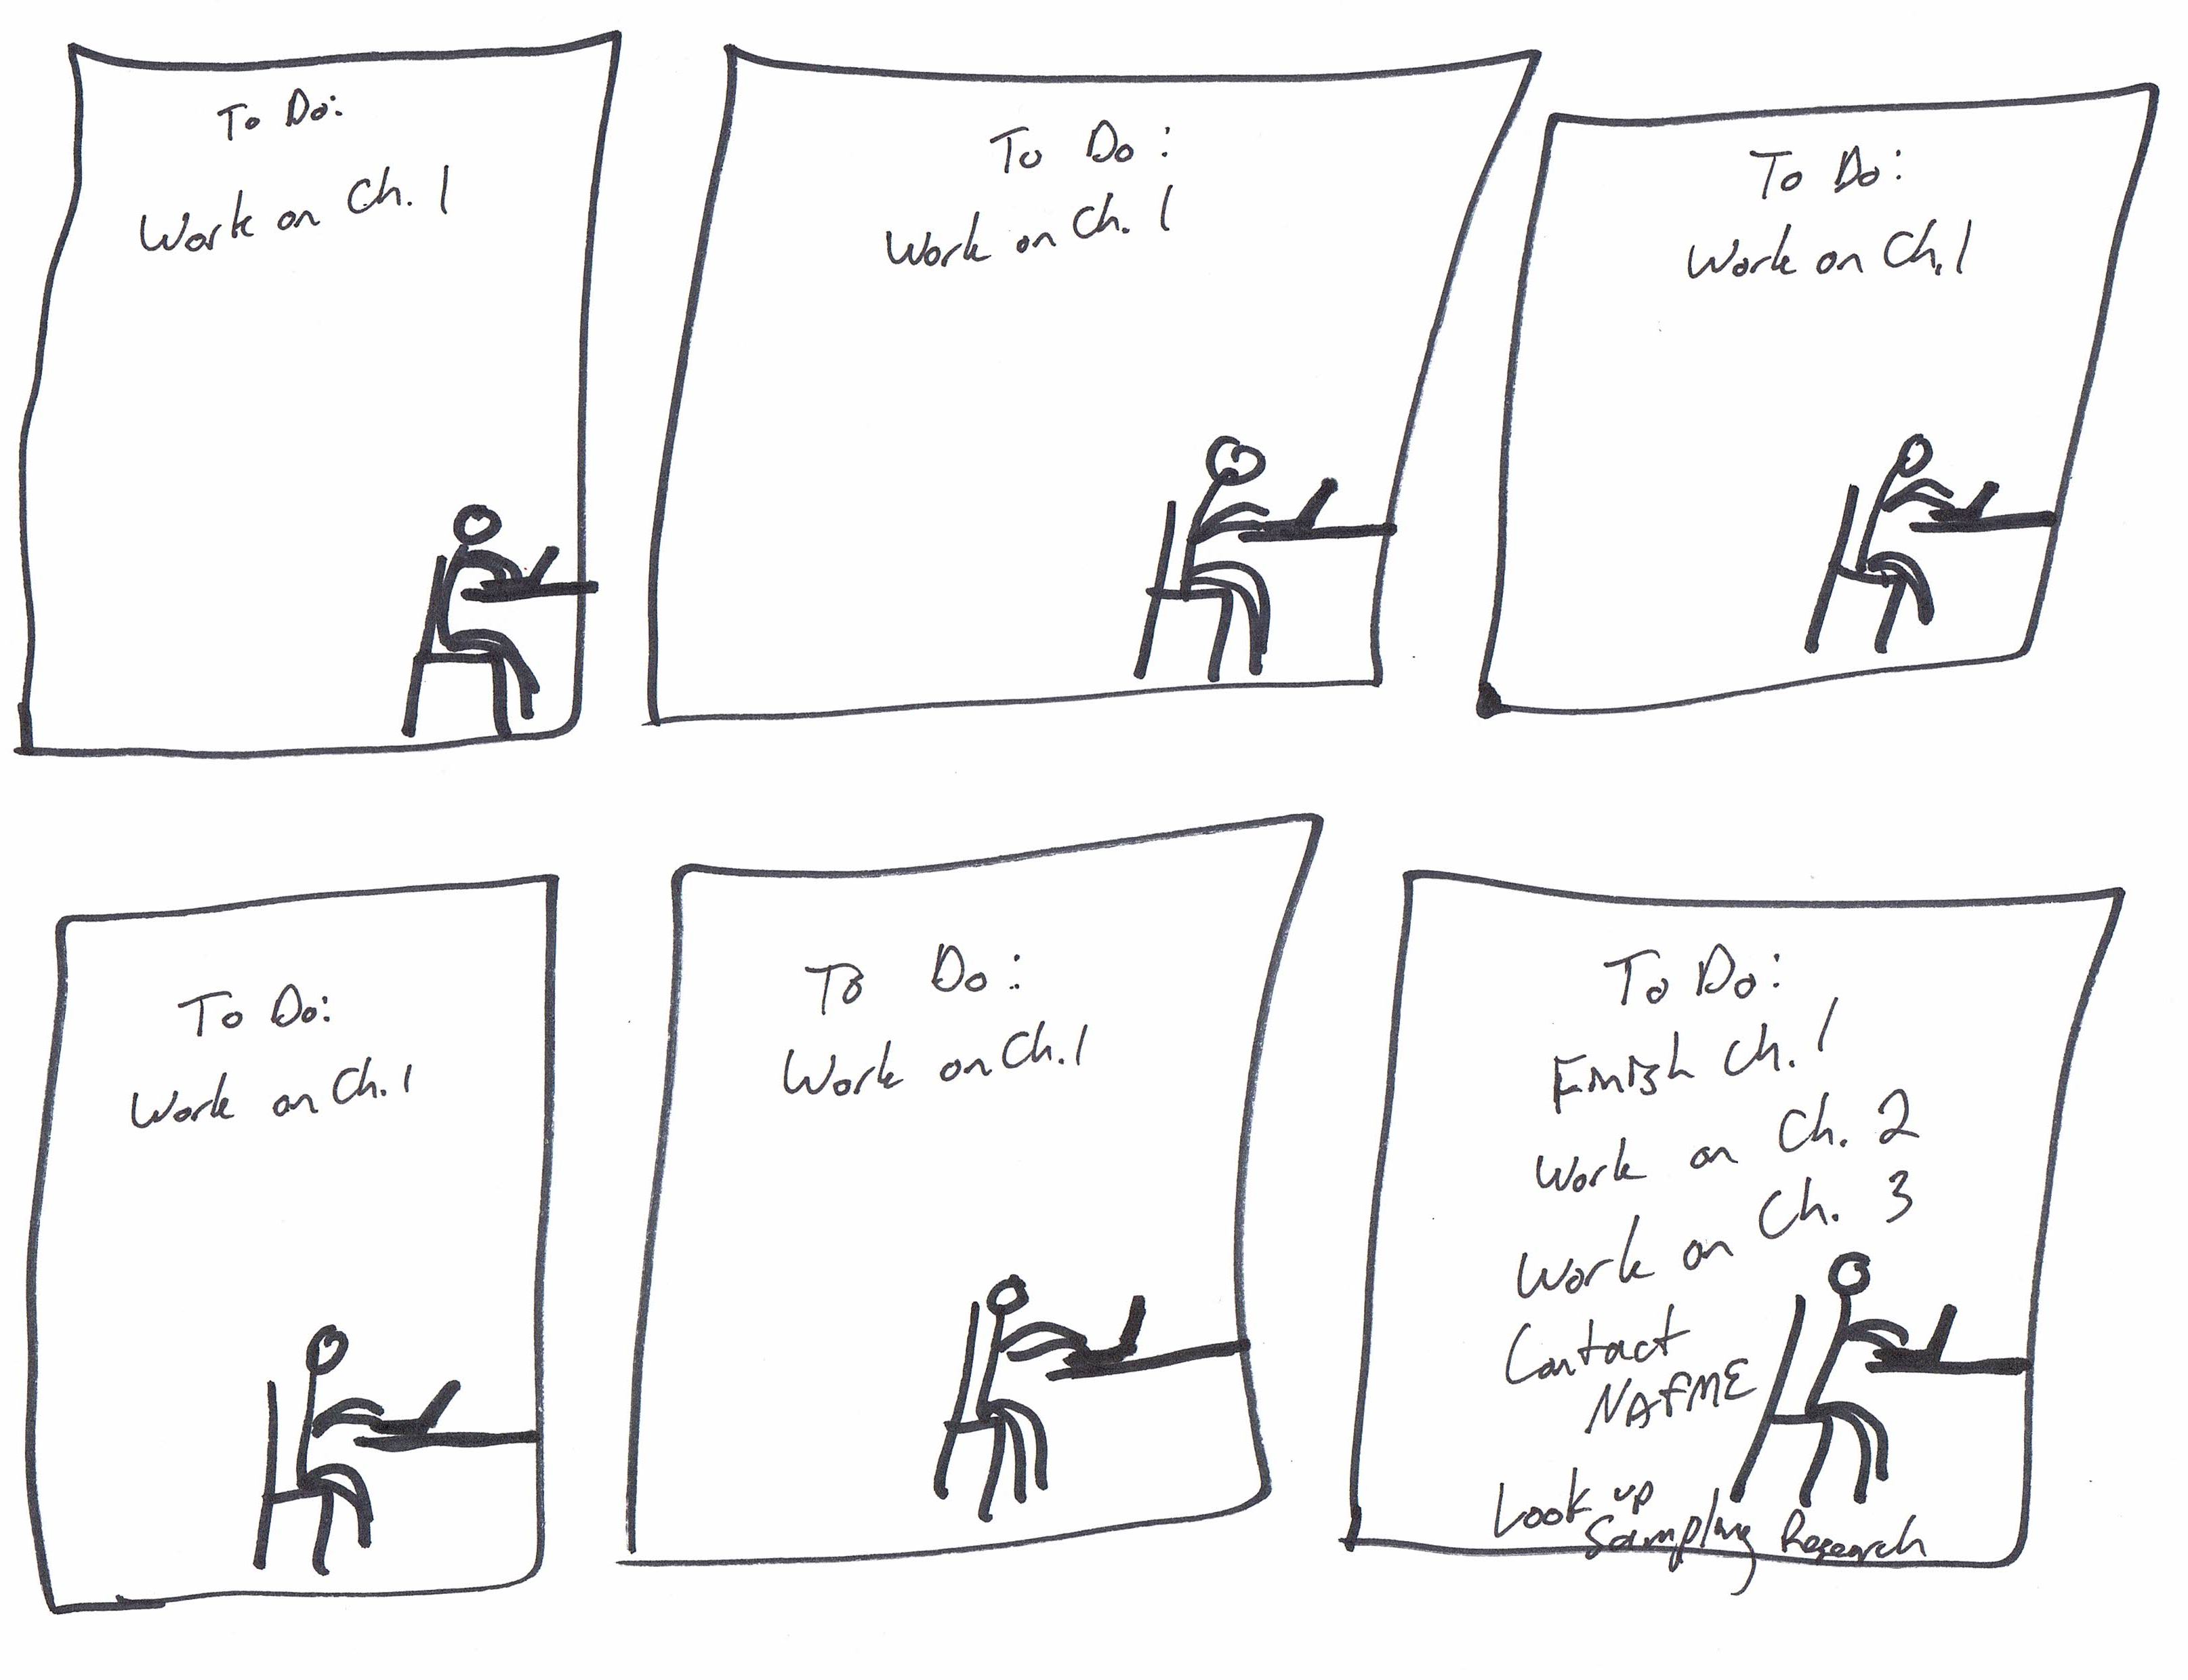 To Do:
Work on Ch. 1
To Do:
Work on Ch. 1
To Do:
Work on Ch. 1
To Do:
Work on Ch. 1
To Do:
Work on Ch. 1
To Do:
Finish Ch. 1
Work on Ch. 2
Work on Ch. 3
Contact
NAFME
Look up
Sampling Research